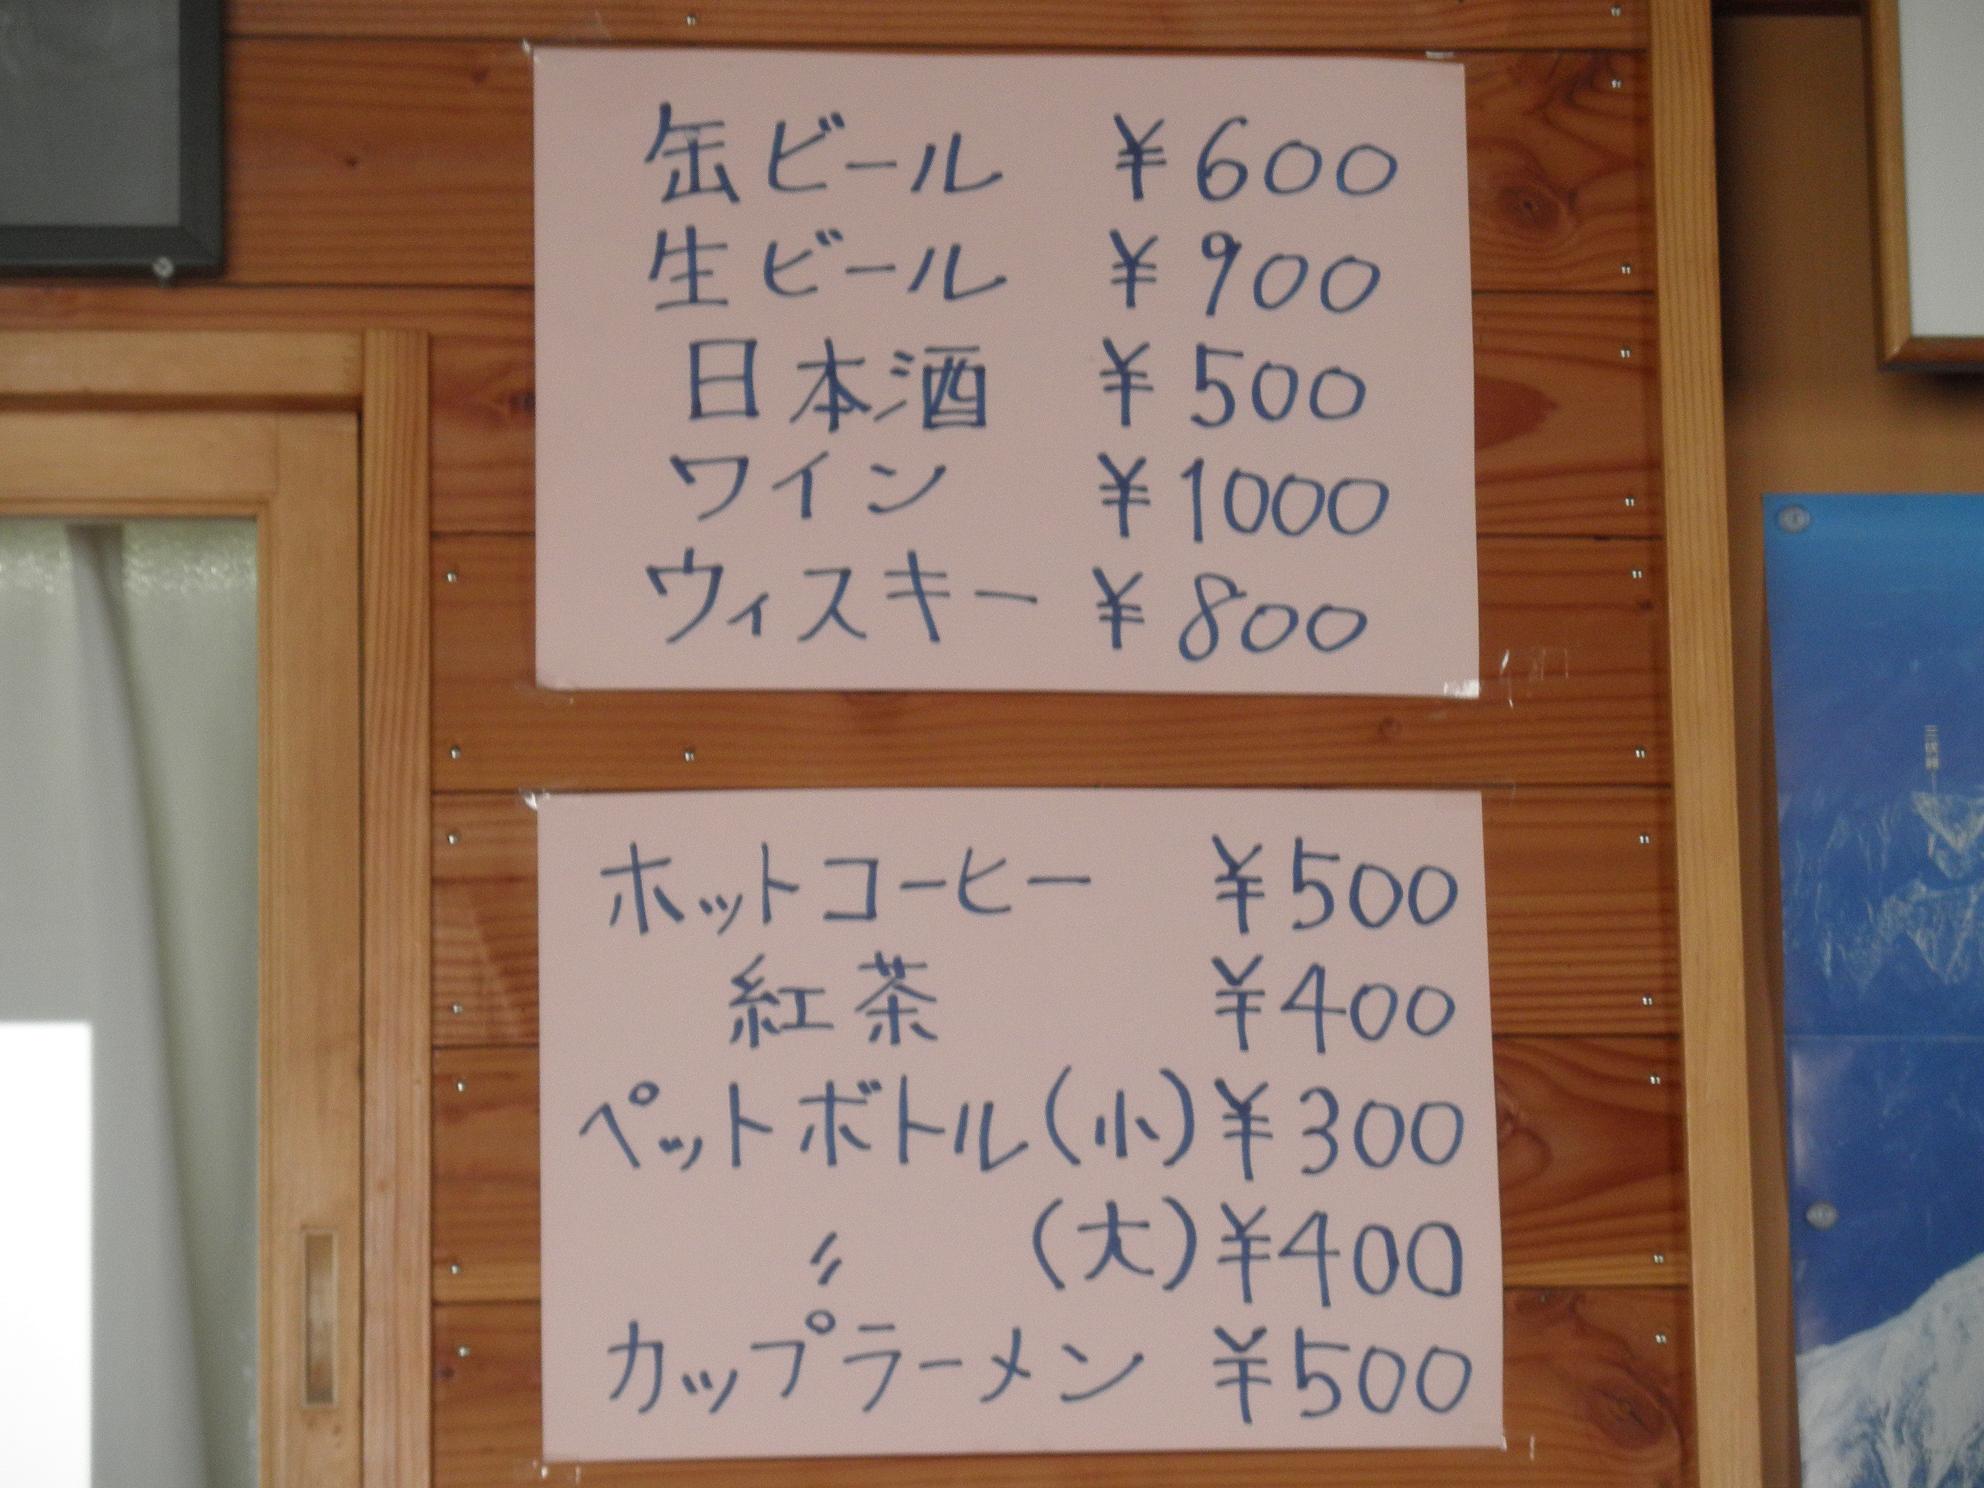 缶ビール ￥600
生ビール ￥900
日本酒 ￥500
ワイン ￥1000
ウィスキー ￥800
ホットコーヒー ￥500
紅茶 ￥400
ペットボトル(小) ￥300
〃 (大) ￥400
カップラーメン ￥500